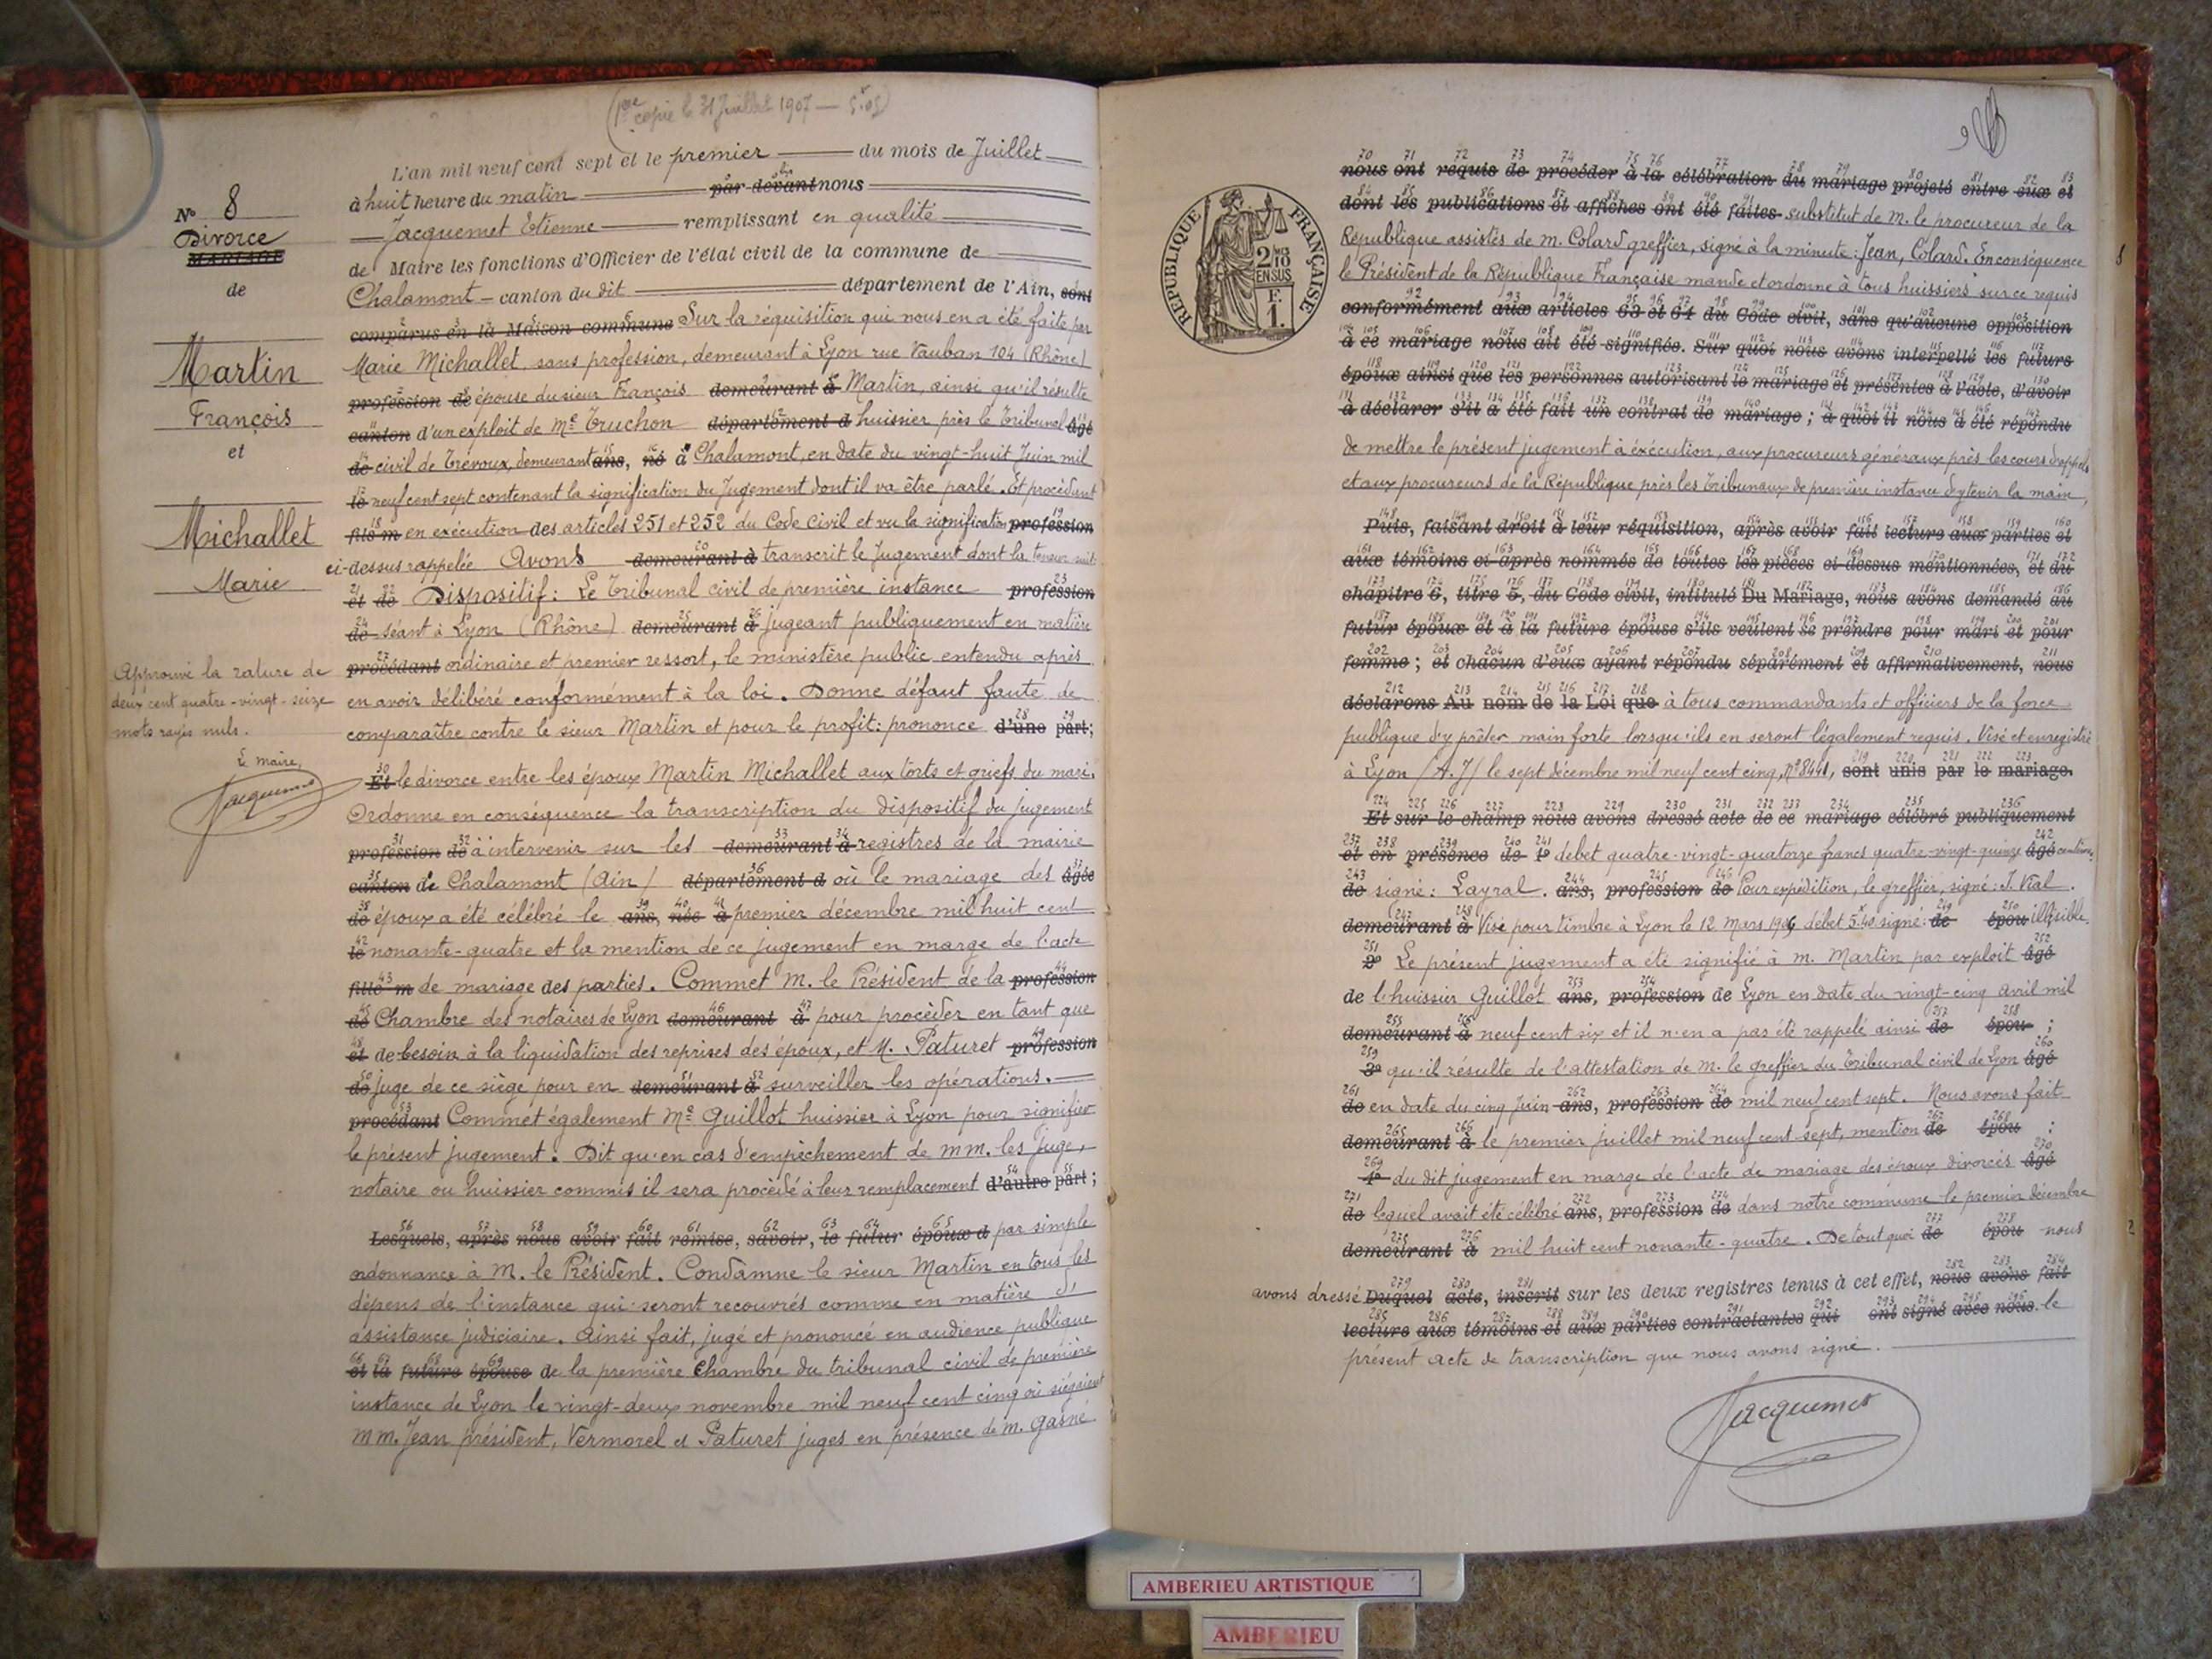 (1ère copie le 31 Juillet 1907 —
N° 8
Divorce
MARIAGE
de
Martin
François
et
Michallet
Marie
Approuvé la rature de
deux cent quatre-vingt-seize
mots rayés nuls.
Le Maire,
Jacquemet
L'an mil neuf cent sept et le premier du mois de Juillet
à huit heure du matin par-devant nous
Jacquemet Etienne remplissant en qualité
de Maire les fonctions d'Officier de l'état civil de la commune de
Chalamont - canton du dit département de l'Ain, sont
comparus en la Maison commune Sur la réquisition qui nous en a été faite par
Marie Michallet sans profession, demeurant à Lyon rue Vauban 104 (Rhône)
profession de épouse du sieur François demeurant à Martin, ainsi qu'il résulte
canton d'un exploit de Me Truchon département d huissier près le Tribunal âgé
de civil de Trévoux, demeurant ans, né à Chalamont, en date du vingt-huit Juin mil
le neuf cent sept contenant la signification du Jugement dont il va être parlé. Et procédant
fils m en exécution des articles 251 et 252 du Code Civil et vu la signification profession
ci-dessus rappelée Avons demeurant à transcrit le Jugement dont la teneur suit:
et de Dispositif: Le Tribunal civil de première instance profession
de séant à Lyon (Rhône) demeurant à jugeant publiquement en matière
procédant ordinaire et premier ressort, le ministère public entendu après
en avoir délibéré conformément à la loi. Donne défaut faute de
comparaître contre le sieur Martin et pour le profit: prononce d'une part;
Et le divorce entre les époux Martin Michallet aux torts et griefs du mari.
Ordonne en conséquence la transcription du dispositif du jugement
profession de à intervenir sur les demeurant à registres de la mairie
canton de Chalamont (Ain) département d où le mariage des âgée
de époux a été célébré le ans, née à premier décembre mil huit cent
le nonante-quatre et la mention de ce jugement en marge de l'acte
fille m de mariage des parties. Commet M. le Président de la profession
de Chambre des notaires de Lyon demeurant à pour procéder en tant que
et de besoin à la liquidation des reprises des époux, et M. Paturet profession
de juge de ce siège pour en demeurant à surveiller les opérations.
procédant Commet également Me Guillot huissier à Lyon pour signifier
le présent jugement. Dit qu'en cas d'empêchement de mm. les juge,
notaire ou huissier commis il sera procédé à leur remplacement d'autre part;
Lesquels, après nous avoir fait remise, savoir, le futur époux d par simple
ordonnance à M. le Président. Condamne le sieur Martin en tous les
dépens de l'instance qui seront recouvrés comme en matière d'
assistance judiciaire. Ainsi fait, jugé et prononcé en audience publique
et la future épouse de la première Chambre du tribunal civil de première
instance de Lyon le vingt-deux novembre mil neuf cent cinq où siégeaient
mm. Jean président, Vermorel et Paturet juges en présence de m. Gasné
9
RÉPUBLIQUE FRANÇAISE
2/10 EN SUS
F.
1.
nous ont requis de procéder à la célébration du mariage projeté entre eux et
dont les publications et affiches ont été faites substitut de m. le procureur de la
République assistés de m. Colard greffier, signé à la minute: Jean, Colard. En conséquence
le Président de la République Française mande et ordonne à tous huissiers sur ce requis
conformément aux articles 63 et 64 du Code civil, sans qu'aucune opposition
à ce mariage nous ait été signifiée. Sur quoi nous avons interpellé les futurs
époux ainsi que les personnes autorisant le mariage et présentes à l'acte, d'avoir
à déclarer s'il a été fait un contrat de mariage ; à quoi il nous a été répondu
de mettre le présent jugement à éxécution, aux procureurs généraux près les cours d'appels
et aux procureurs de la République près les Tribunaux de première instance d'y tenir la main,
Puis, faisant droit à leur réquisition, après avoir fait lecture aux parties et
aux témoins ci-après nommés de toutes les pièces ci-dessus mentionnées, et du
chapitre 6, titre 5, du Code civil, intitulé Du Mariage, nous avons demandé au
futur époux et à la future épouse s'ils veulent se prendre pour mari et pour
femme ; et chacun d'eux ayant répondu séparément et affirmativement, nous
déclarons Au nom de la Loi que à tous commandants et officiers de la force
publique d'y prêter main forte lorsqu'ils en seront légalement requis. Visé et enregistré
à Lyon (A.J) le sept décembre mil neuf cent cinq, N° 8441, sont unis par le mariage.
Et sur-le-champ nous avons dressé acte de ce mariage célébré publiquement
et en présence de 1° débet quatre-vingt-quatorze francs quatre-vingt-quinze âgé centimes
de signé: Layral. ans, profession de Pour expédition, le greffier, signé: J. Vial.
demeurant à Visé pour timbre à Lyon le 12 Mars 1906 débet 5f40 signé: de épou illisible.
2° Le présent jugement a été signifié à m. Martin par exploit âgé
de l'huissier Guillot ans, profession de Lyon en date du vingt-cinq avril mil
demeurant à neuf cent six et il n'en a pas été rappelé ainsi de épou ;
3° qu'il résulte de l'attestation de m. le greffier du Tribunal civil de Lyon âgé
de en date du cinq Juin ans, profession de mil neuf cent sept. Nous avons fait
demeurant à le premier juillet mil neuf cent sept, mention de épou ;
4° du dit jugement en marge de l'acte de mariage des époux divorcés âgé
de lequel avait été célébré ans, profession de dans notre commune le premier décembre
demeurant à mil huit cent nonante-quatre. De tout quoi de épou nous
avons dressé Duquel acte, inscrit sur les deux registres tenus à cet effet, nous avons fait
lecture aux témoins et aux parties contractantes qui ont signé avec nous. le
présent acte de transcription que nous avons signé.
Jacquemet
AMBERIEU ARTISTIQUE
AMBERIEU